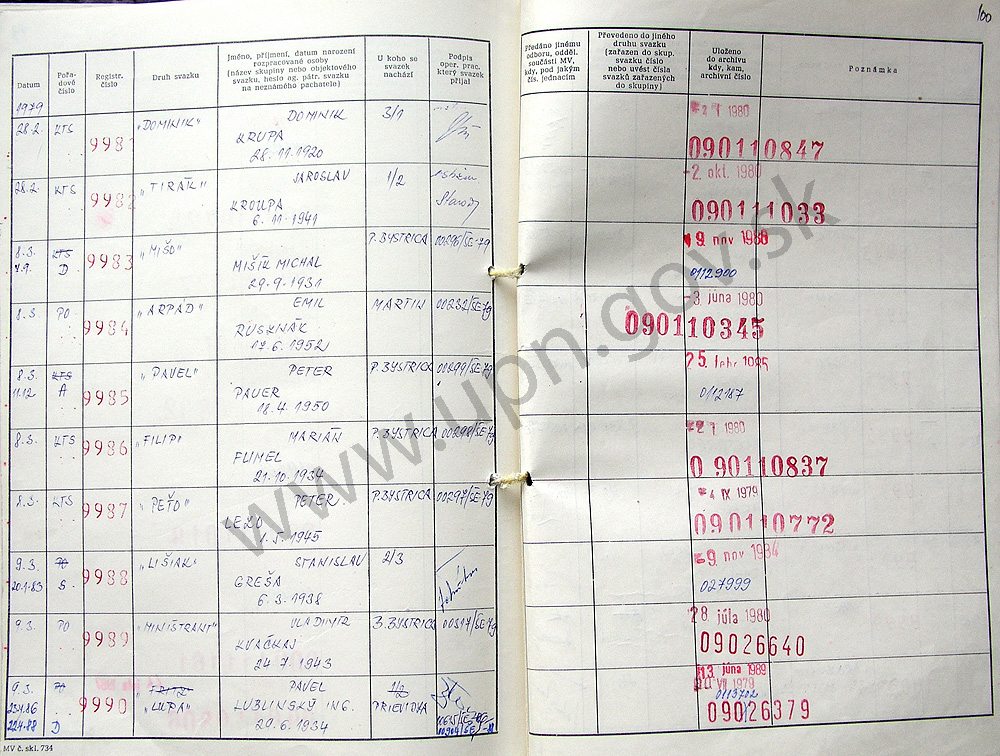 100
Datum
Pořa-
dové
číslo
Registr.
číslo
Druh svazku
Jméno, příjmení, datum narození
rozpracované osoby
(název skupiny nebo objektového
svazku, heslo ag. pátr. svazku
na neznámého pachatele)
U koho se
svazek
nachází
Podpis
oper. prac.
který svazek
přijal
Předáno jinému
odboru, odděl.
součásti MV,
kdy, pod jakým
čís. jednacím
Převedeno do jiného
druhu svazku
(zařazen do skup.
svazku číslo
nebo uvést čísla
svazků zařazených
do skupiny)
Uloženo
do archivu
kdy, kam,
archivní číslo
Poznámka
1979
28.2. KTS 9981 "DOMINIK" DOMINIK 3/1 1980
KRUPA
28.11.1920 090110847
28.2. KTS 9982 "TIRÁK" JAROSLAV 1/2 -2. okt. 1980
KROUPA
6.11.1941 090111033
8.3. KTS 9983 "MIŠO" P. BYSTRICA 00296/ŠE-79 9 nov 1980
D MIŠÍK MICHAL 0112900
29.9.1931
8.3. PO 9984 "ARPÁD" EMIL MARTIN 00232/ŠE-79 -3. júna 1980
RUSNÁK 090110345
17.6.1952
8.3. KTS 9985 "PAVEL" PETER P. BYSTRICA 00299/ŠE-79 25. febr. 1985
11.12 A PAUER 0112187
18.4.1950
8.3. KTS 9986 "FILIP" MARIÁN P. BYSTRICA 00298/ŠE-79 1980
FUMEL 090110837
21.10.1934
8.3. KTS 9987 "PEŤO" PETER P. BYSTRICA 00297/ŠE-79 4 IX 1979
1.5.1945 090110772
9.3. 9988 "LIŠIAK" STANISLAV 2/3 9 nov
20.1.83 S. GREŠA 027999
6.3.1938
9.3. PO 9989 "MINIŠTRANT" VLADIMÍR B. BYSTRICA 00317/ŠE-79 28. júla 1980
KVAČKAJ 09026640
24.7.1943
9.3. 9990 PAVEL 1/2 13. júna 1989
"LUPA" LUBLINSKÝ ING. PRIEVIDZA 0113702
22.4.88 D 29.6.1934 09026379
MV č. skl. 734
www.upn.gov.sk